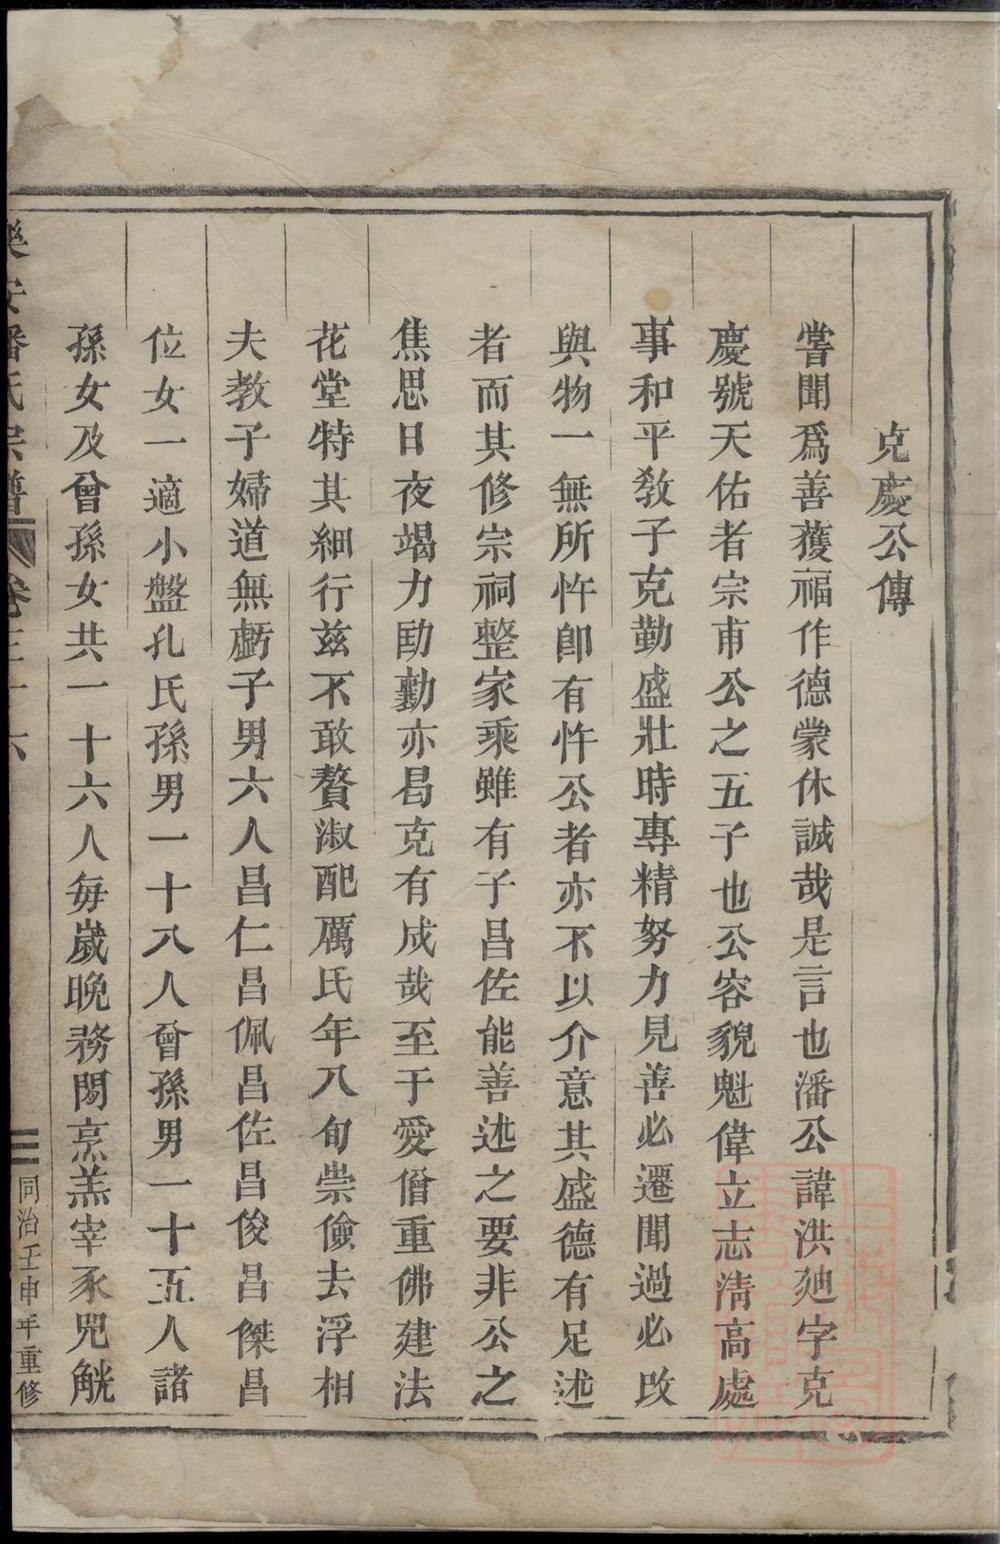 克慶公傳
嘗聞爲善獲福作德蒙休誠哉是言也潘公諱洪廸字克
慶號天佑者宗甫公之五子也公容貌魁偉立志淸高處
事和平敎子克勤盛壯時專精努力見善必遷聞過必改
與物一無所忤卽有忤公者亦不以介意其盛德有足述
者而其修宗祠整家乘雖有子昌佐能善述之要非公之
焦思日夜竭力劻勷亦曷克有成哉至于愛僧重佛建法
花堂特其細行兹不敢贅淑配厲氏年八旬崇儉去浮相
夫教子婦道無虧子男六人昌仁昌佩昌佐昌俊昌傑昌
位女一適小盤孔氏孫男一十八人曾孫男一十五人諸
孫女及曾孫女共一十六人每歲晩務閑烹羔宰豕兕觥
樂安潘氏宗譜 卷三十六 同治壬申年重修